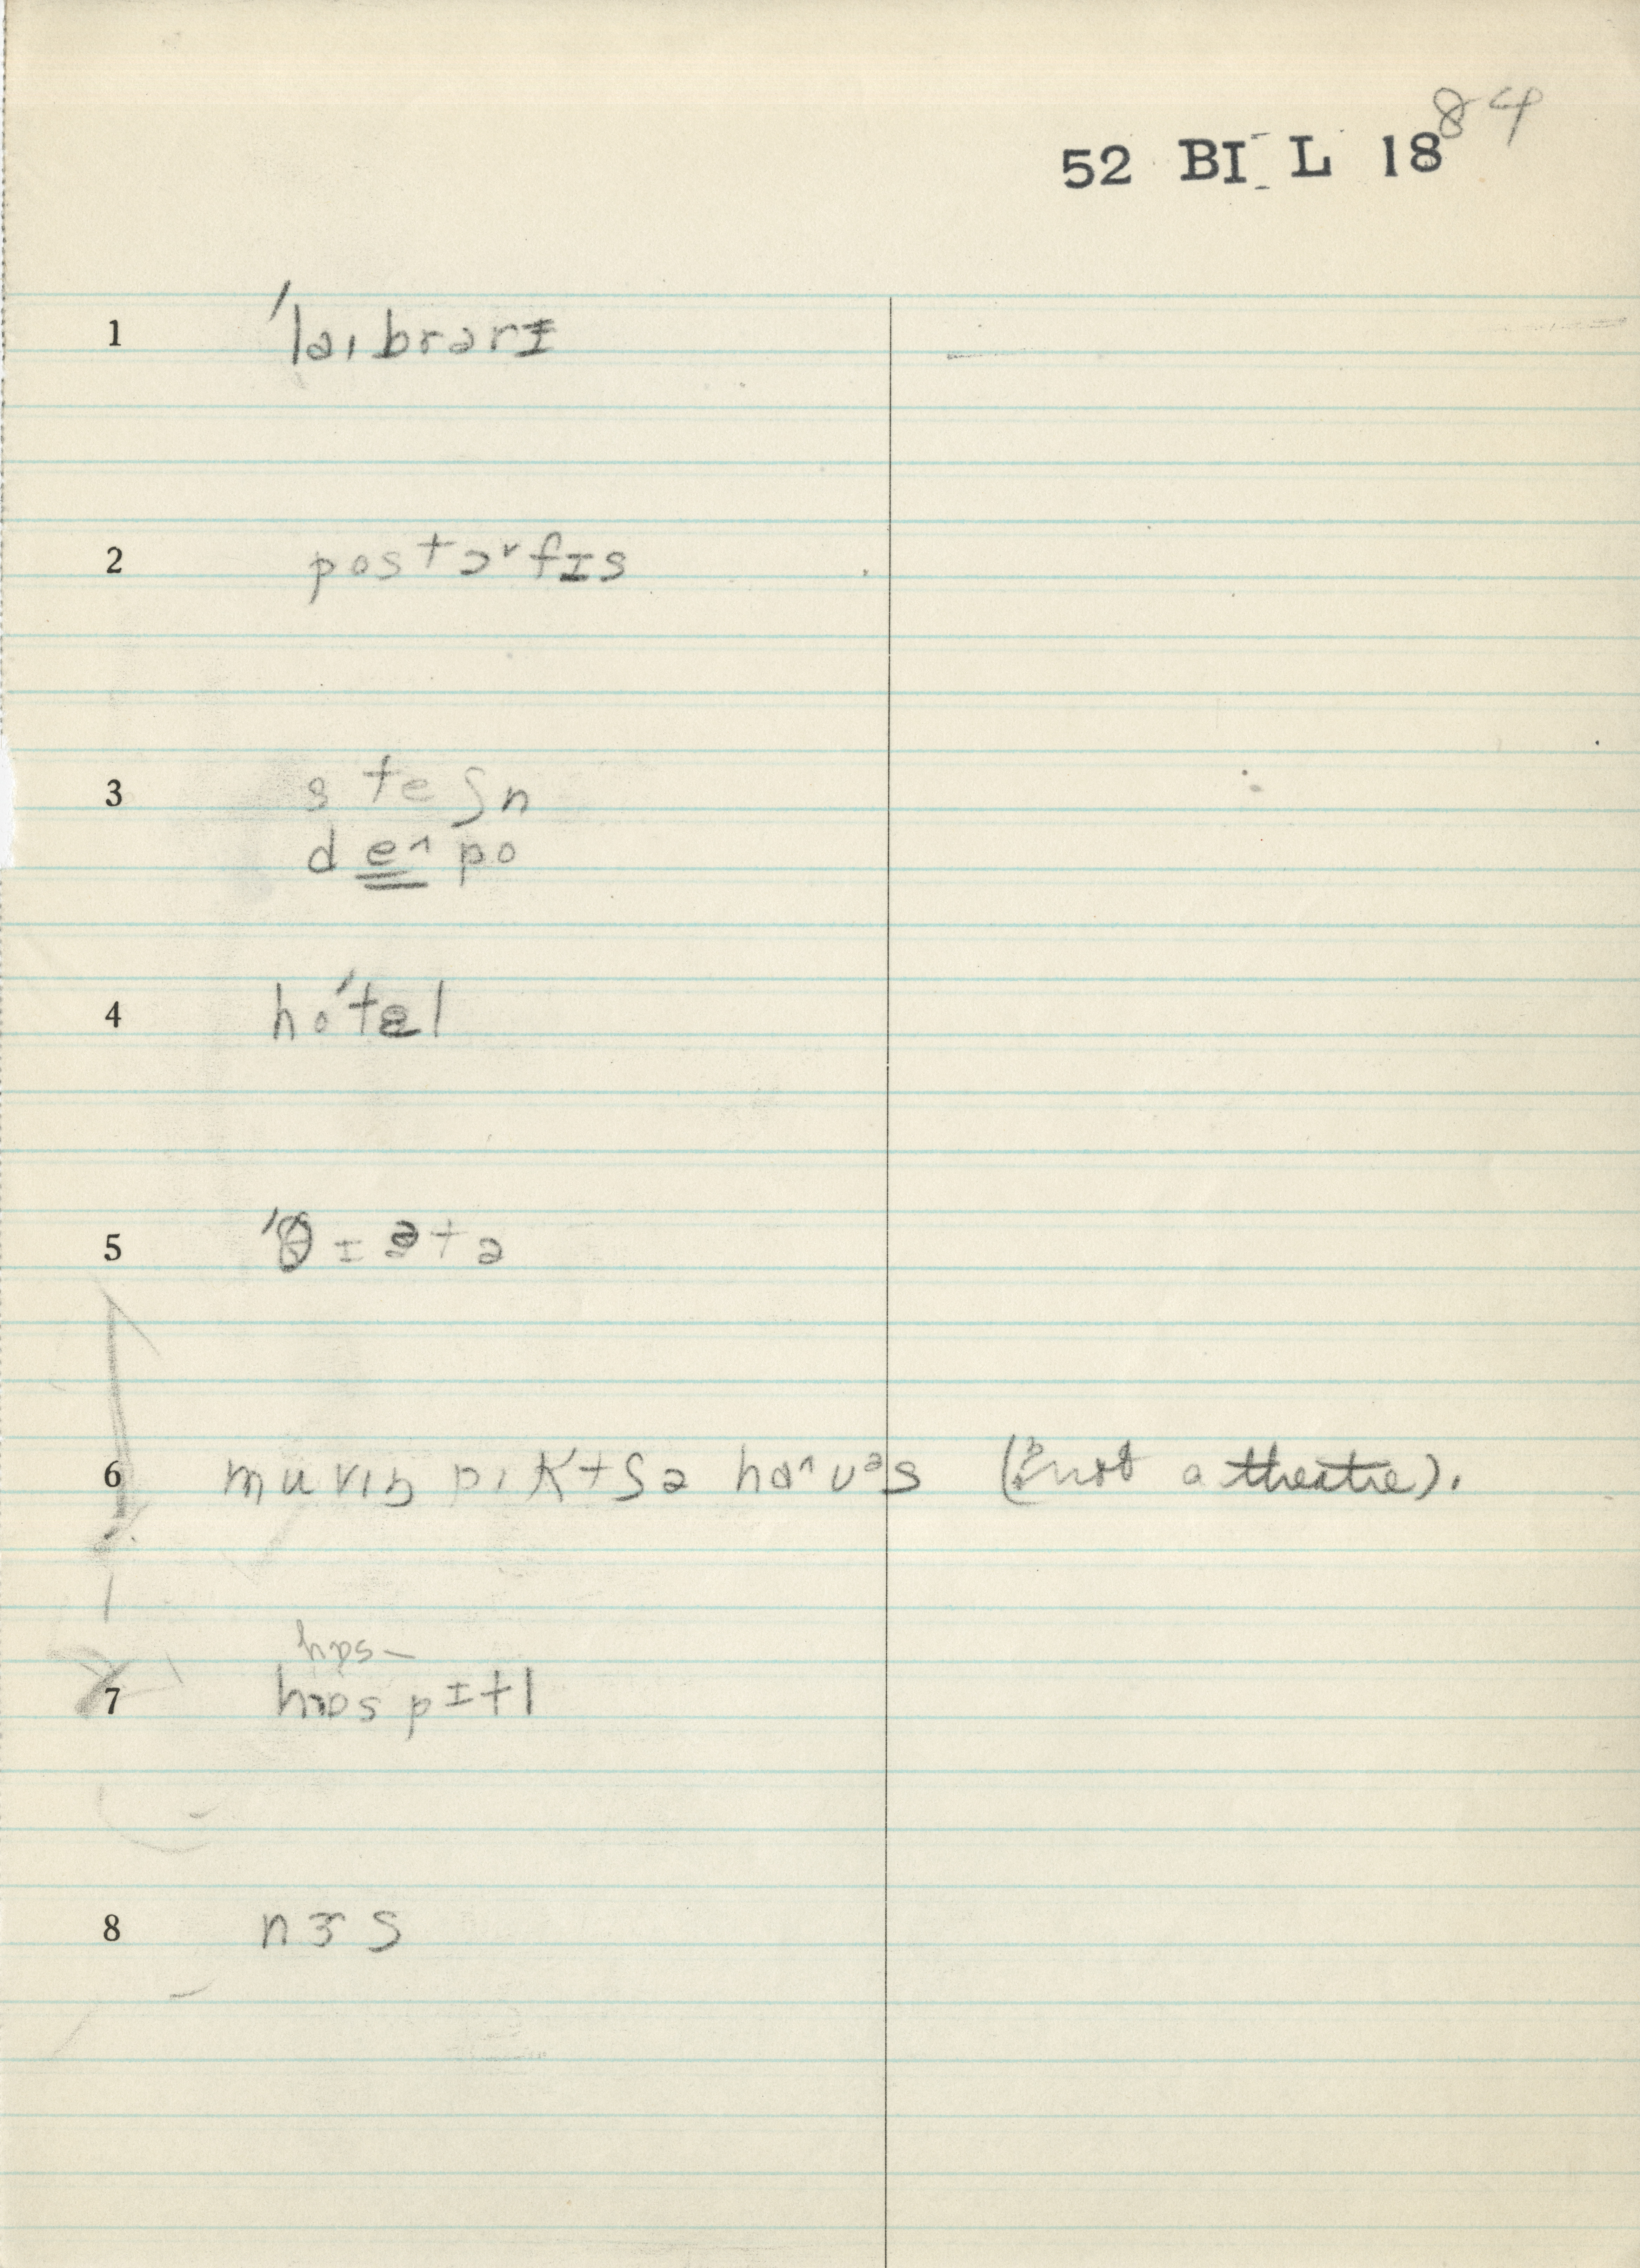 84
52 BI L 18
1 ˈlaɪbrərɪ
2 postɔˇfɪs
3 steʃn
de^po
4 hoˈtel
5 ˈθɪətə
6 muvɪŋ pɪktʃə ha^uəs (not a theatre).
hɒs–
7 hɒspɪtl
8 nɜs